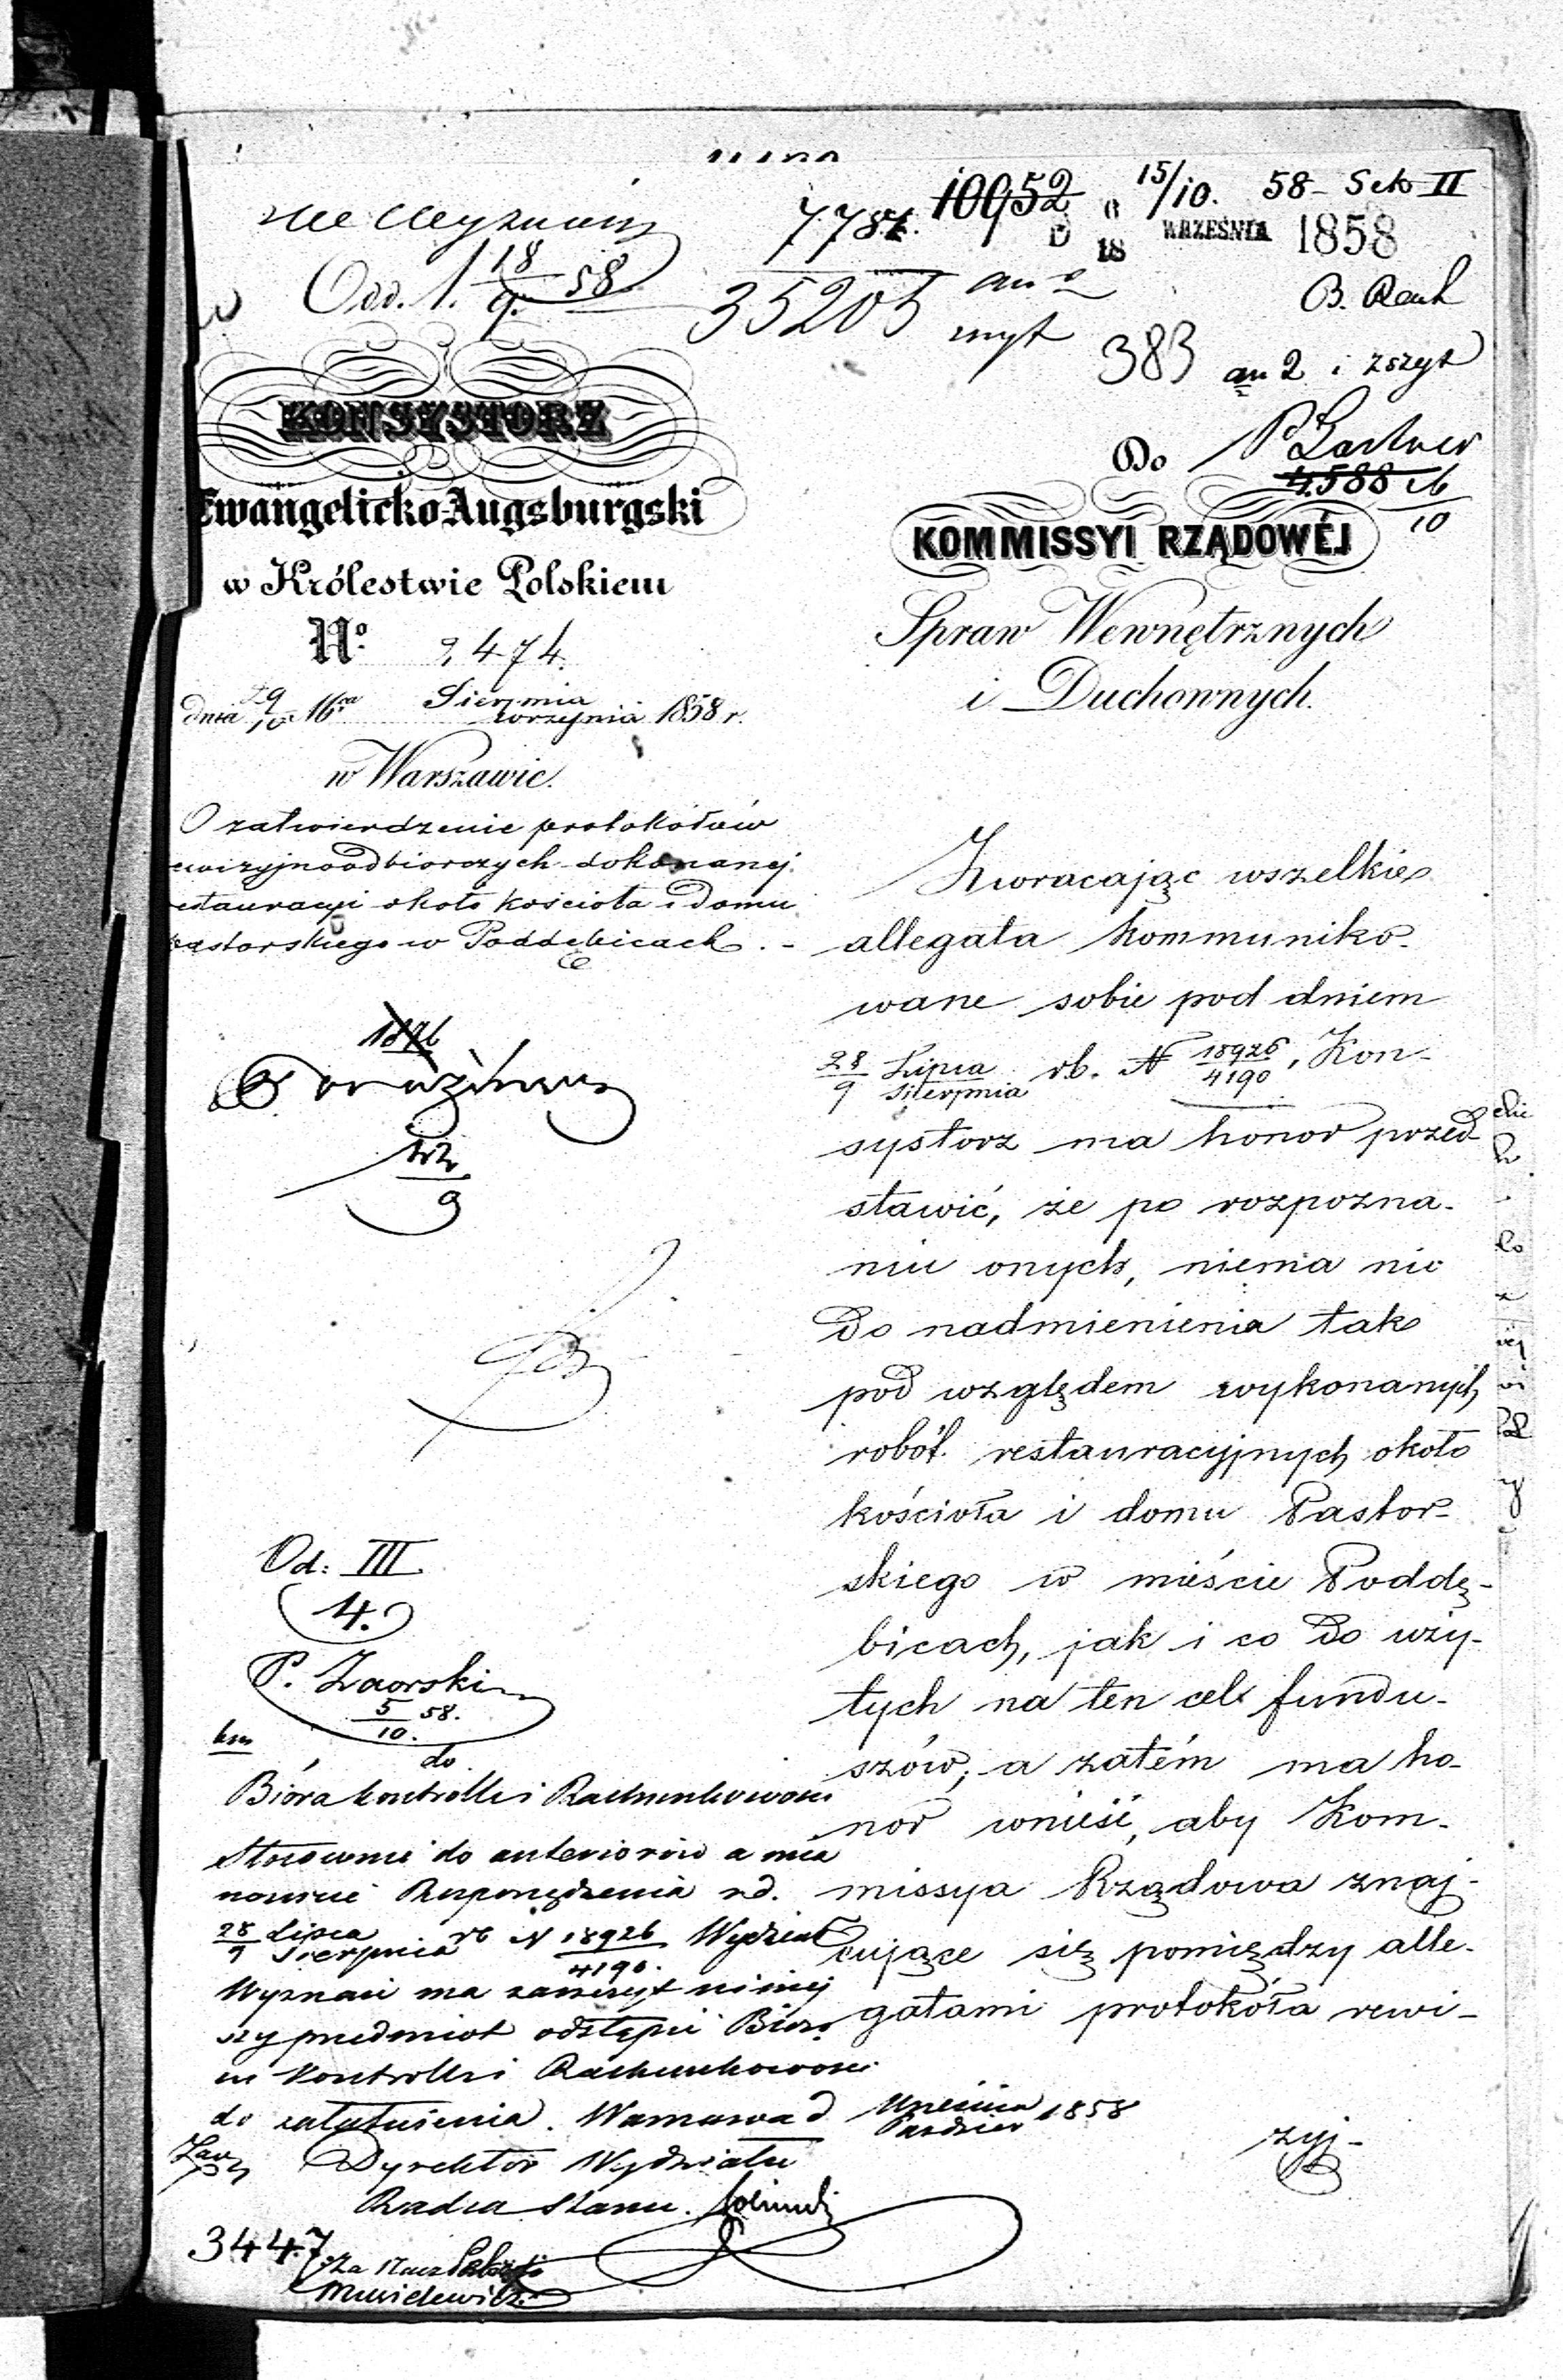 10952 15/10. 58 - Sek II
778
D 6/18 WRZEŚNIA 1858
Odd. 1. 18/9. 58
35205
B. Rauh
383 an 2 i zszyt
KONSYSTORZ
Ewangelicko-Augsburgski
w Królestwie Polskiem
No. 2474.
dnia 16 Sierpnia Września 1858 r.
w Warszawie.
O zatwierdzenie protokołów
rewizyjnoodbiorczych dokonanej
restauracyi około kościoła i domu
pastorskiego w Poddębicach. -
Do
4588
10
KOMMISSYI RZĄDOWÉJ
Spraw Wewnętrznych
i Duchownych.
Zwracając wszelkie
allegata kommuniko-
wane sobie pod dniem
28/9 Lipca/Sierpnia rb. N 18926/4190, Kon-
systorz ma honor przed
stawić, że po rozpozna-
niu onych, niema nic
do nadmienienia tak
pod względem wykonanych
robót restauracyjnych około
kościoła i domu Pastor-
skiego w mieście Poddę-
bicach, jak i co do uży-
tych na ten cel fundu-
szów; a zatém ma ho-
nor wnieść, aby Kom-
missya Rządowa znaj-
dujące się pomiędzy alle-
gatami protokóła rewi-
zyj-
1876
9
Od: III
4.
P. Zaorski
5/10. 58.
do
Bióra Kontrolli i Rachunkowości
Stosownie do anteriorów a mia
nowicie Rozporządzenia z d.
28/9 Lipca/Sierpnia rb N 18926/4190. Wydział
Wyznań ma zaszczyt niniej
szy przedmiot odstąpić Bióru
Kontrolli i Rachunkowości
do załatwienia. Warszawa d Września/Paździer 1858
Dyrektor Wydziału
Radca Stanu.
3447